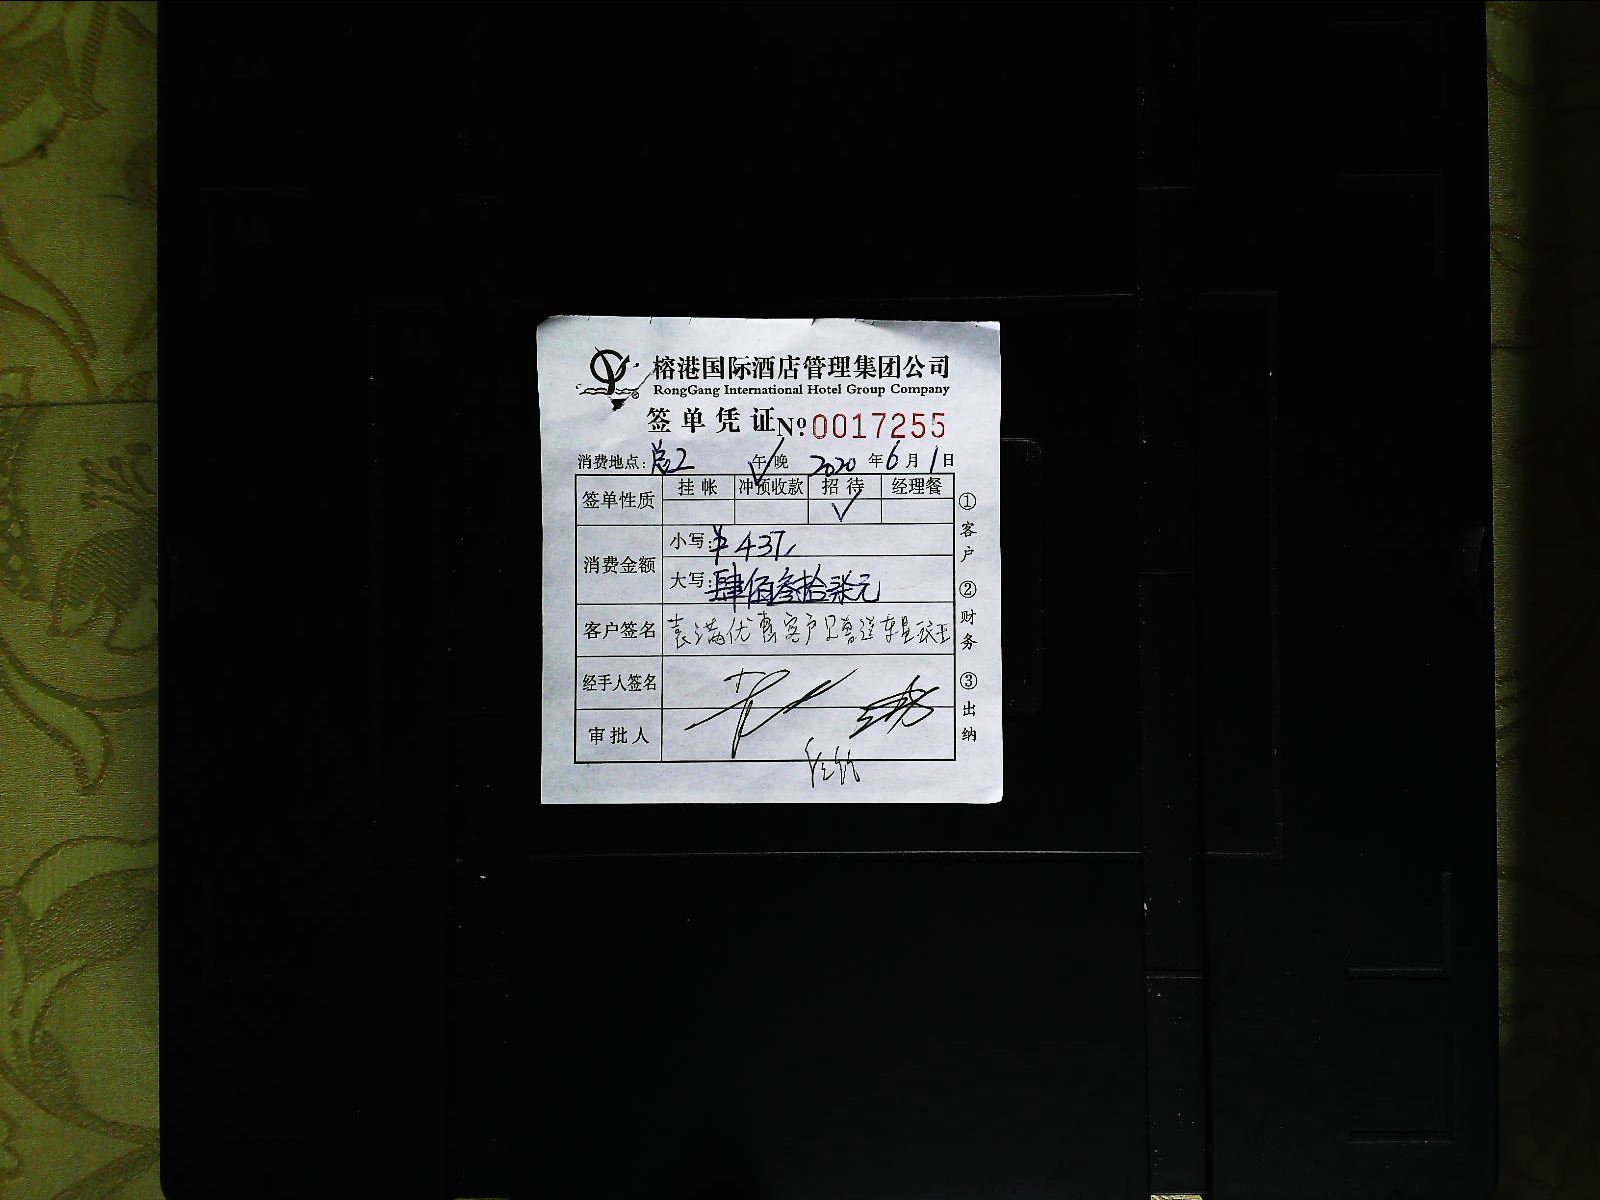 榕港国际酒店管理集团公司
RongGang International Hotel Group Company
签单凭证 Nº 0017255
消费地点: 总2 午 晚 2020 年 6 月 1 日
签单性质 挂帐 冲预收款 招待 经理餐
✓
消费金额 小写: ¥437
大写: 肆佰叁拾柒元
客户签名 袁满优惠客户
经手人签名
审批人
①客户 ②财务 ③出纳